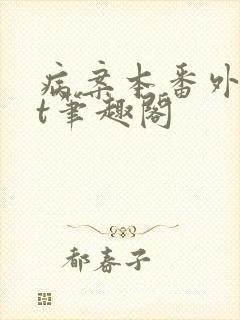 病案本番外
t笔趣阁
都春子